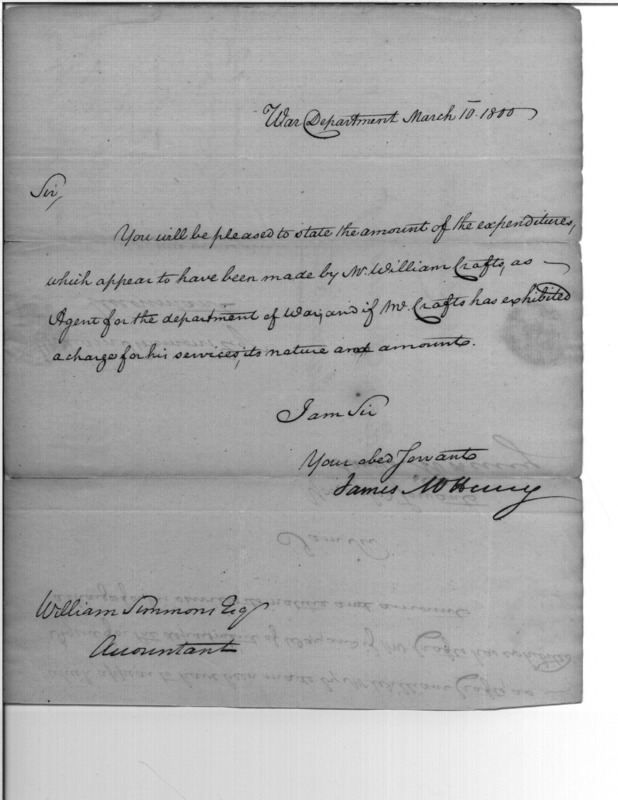 War Department March 10. 1800
Sir,
You will be pleased to state the amount of the expenditures,
which appear to have been made by Mr. William Crafts, as
Agent for the department of War, and if Mr. Crafts has exhibited
a charge for his services, its nature and amount.
I am Sir
Your obed Servant
James McHenry
William Simmons Esqr
Accountant